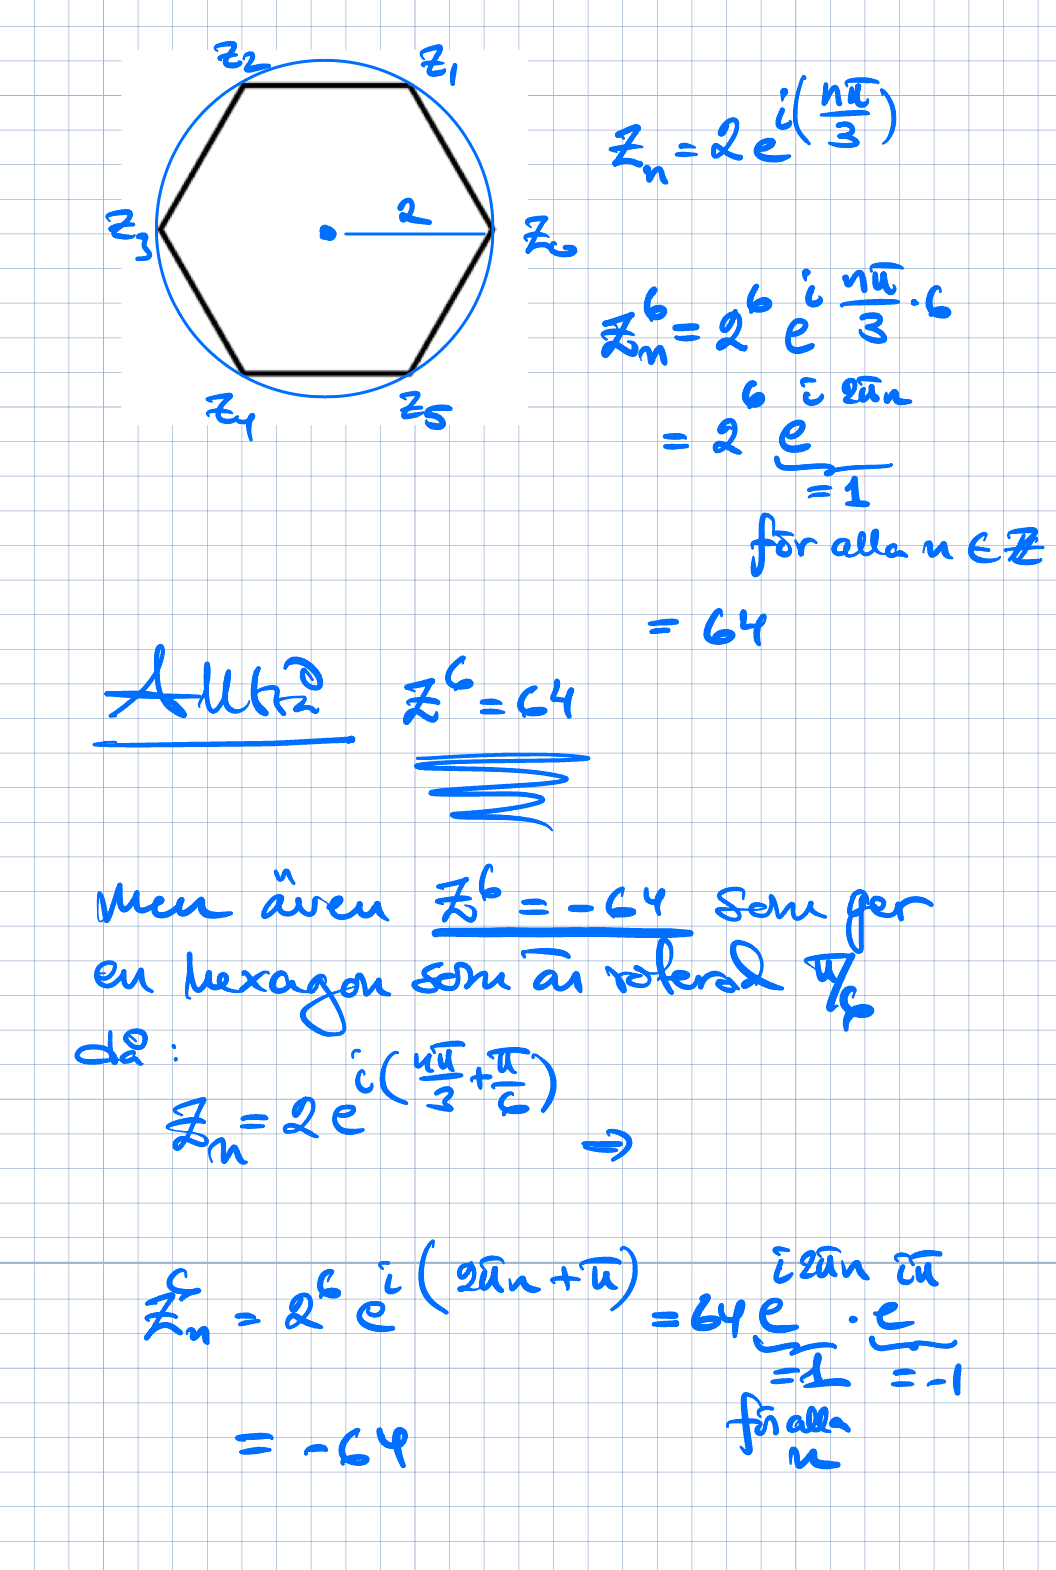 z₂ z₁
z₃ 2 z₀
z₄ z₅
zₙ = 2e^{i(nπ/3)}
zₙ⁶ = 2⁶ e^{i nπ/3 · 6}
= 2⁶ e^{i 2πn}
= 1
för alla n ∈ ℤ
= 64
z⁶ = 64
Men även z⁶ = -64 som ger
en hexagon som är roterad π/6
då:
zₙ = 2e^{i(nπ/3 + π/6)} ⇒
zₙ⁶ = 2⁶ e^{i(2πn + π)} = 64 e^{i2πn} · e^{iπ}
=1 = -1
för alla
n
= -64